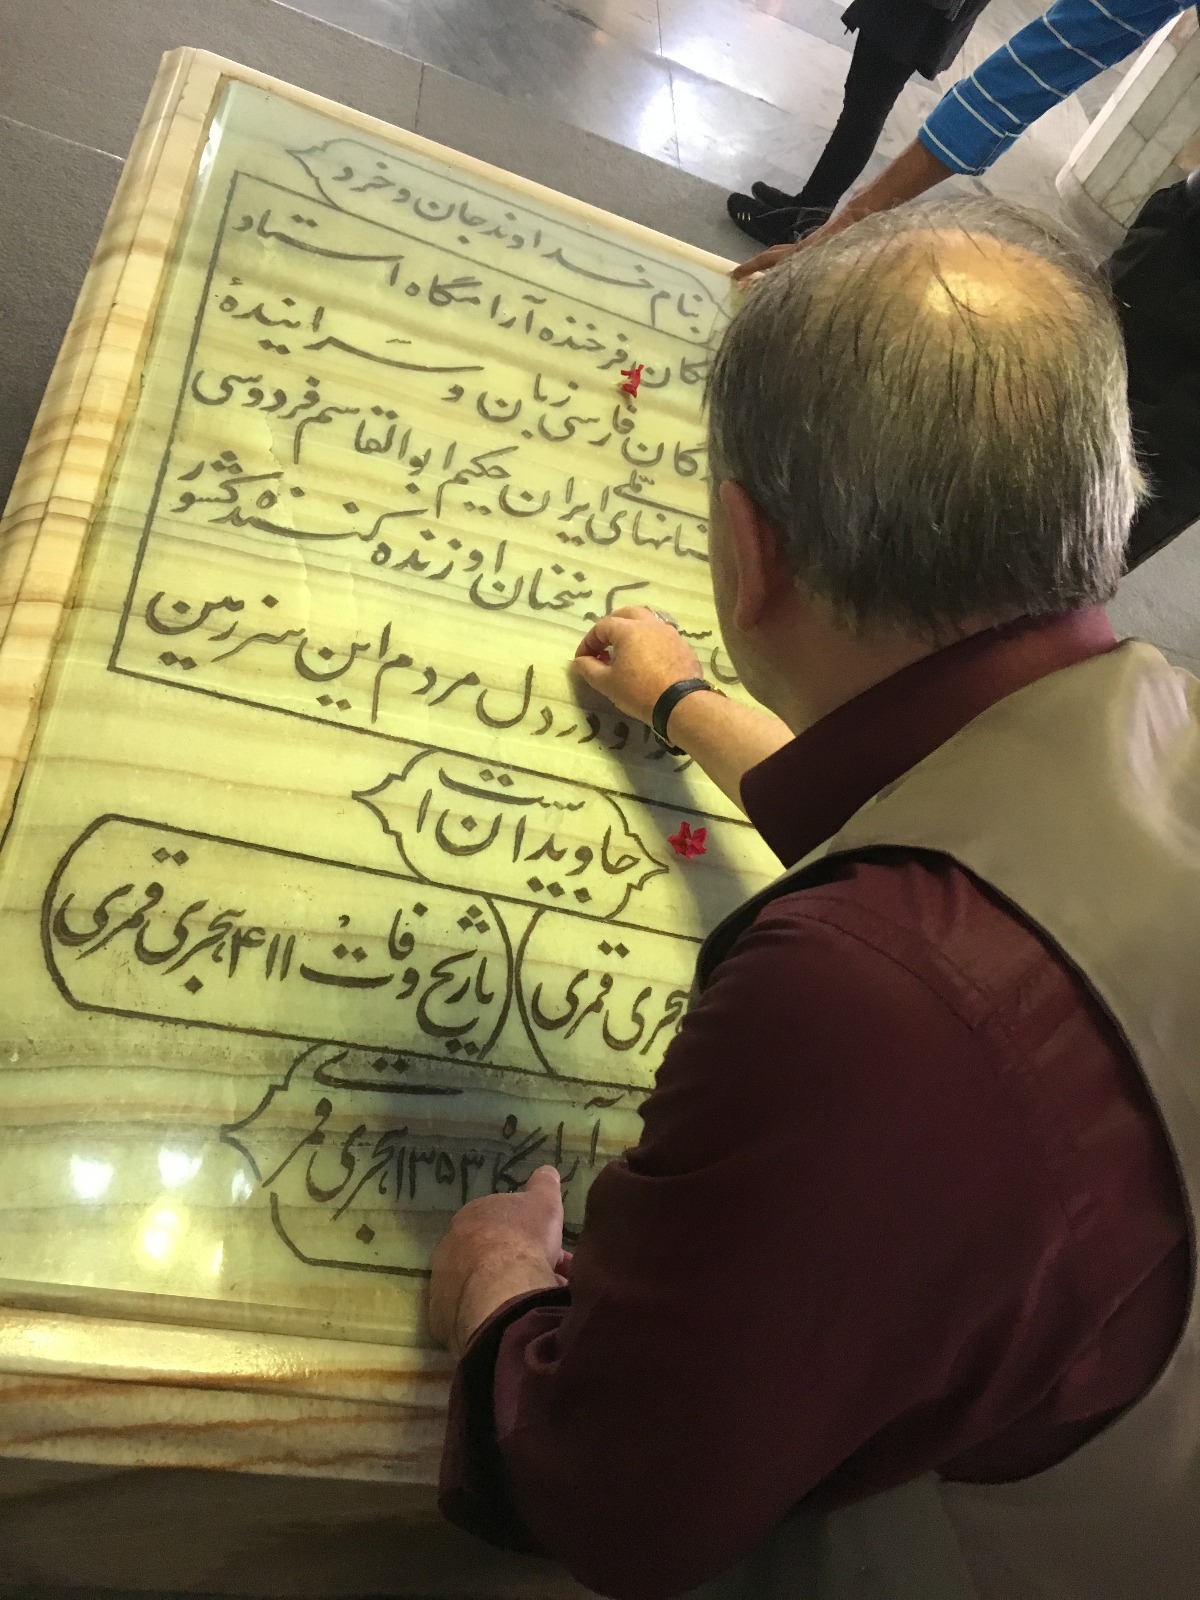 بنام خداوند جان و خرد
فرخنده آرامگاه استاد
فارسی زبان و سراینده
ملی ایران حکیم ابوالقاسم فردوسی
که سخنان او زنده کننده کشور
و در دل مردم این سرزمین
جاویدان است
هجری قمری
تاریخ وفات ۴۱۱ هجری قمری
۱۳۵۳ هجری قمری